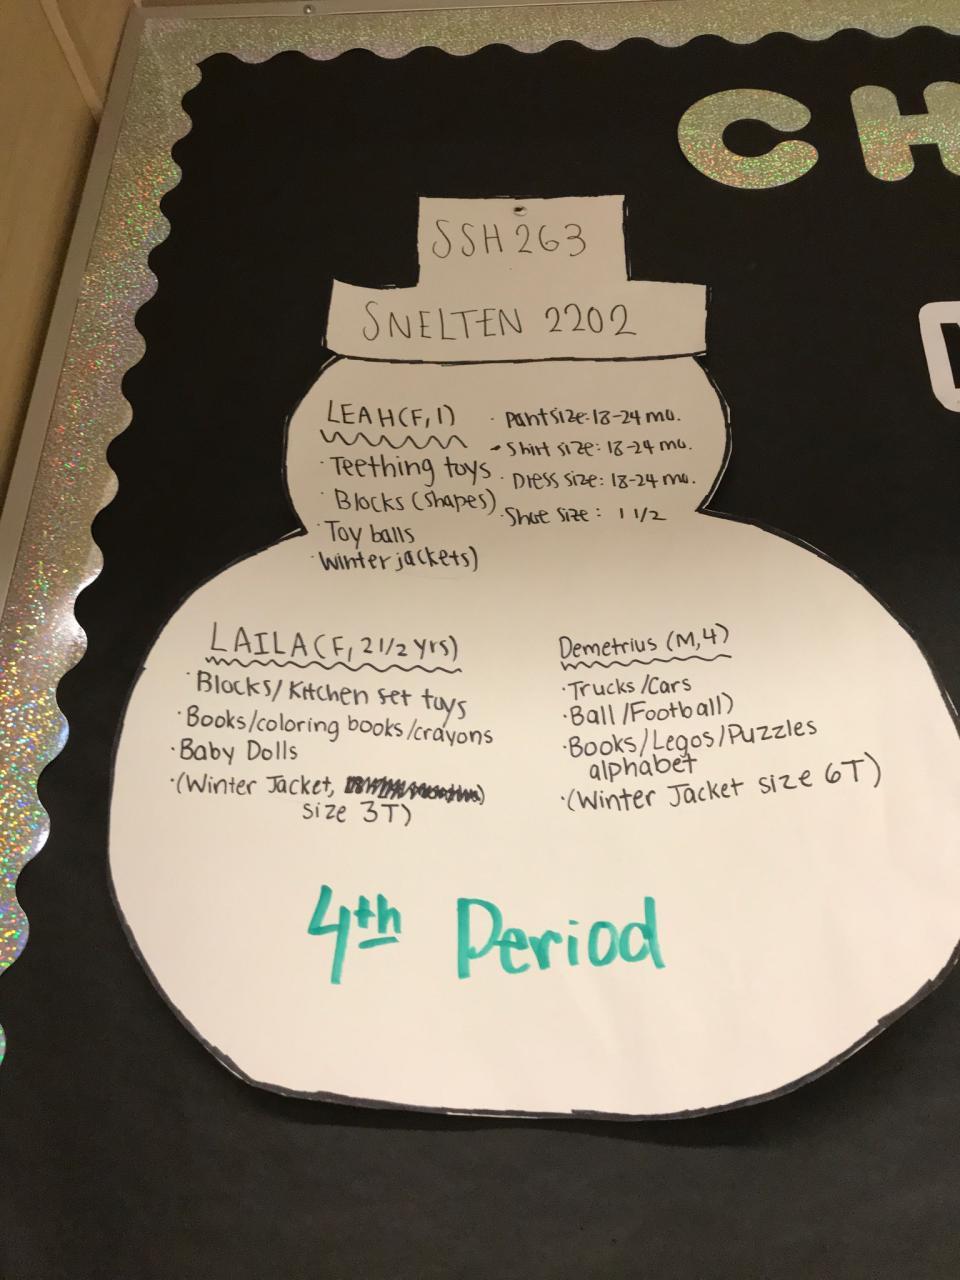 CH
SSH 263
SNELTEN 2202
LEAH (F, 1)
· Teething toys
· Blocks (shapes)
· Toy balls
· Winter jackets)
· Pant size: 18-24 mo.
· Shirt size: 18-24 mo.
· Dress size: 18-24 mo.
· Shoe size: 1 1/2
LAILA (F, 2 1/2 yrs)
· Blocks/Kitchen set toys
· Books/coloring books/crayons
· Baby Dolls
· (Winter Jacket,
size 3T)
Demetrius (M, 4)
· Trucks/Cars
· Ball/Football)
· Books/Legos/Puzzles
alphabet
· (Winter Jacket size 6T)
4th Period